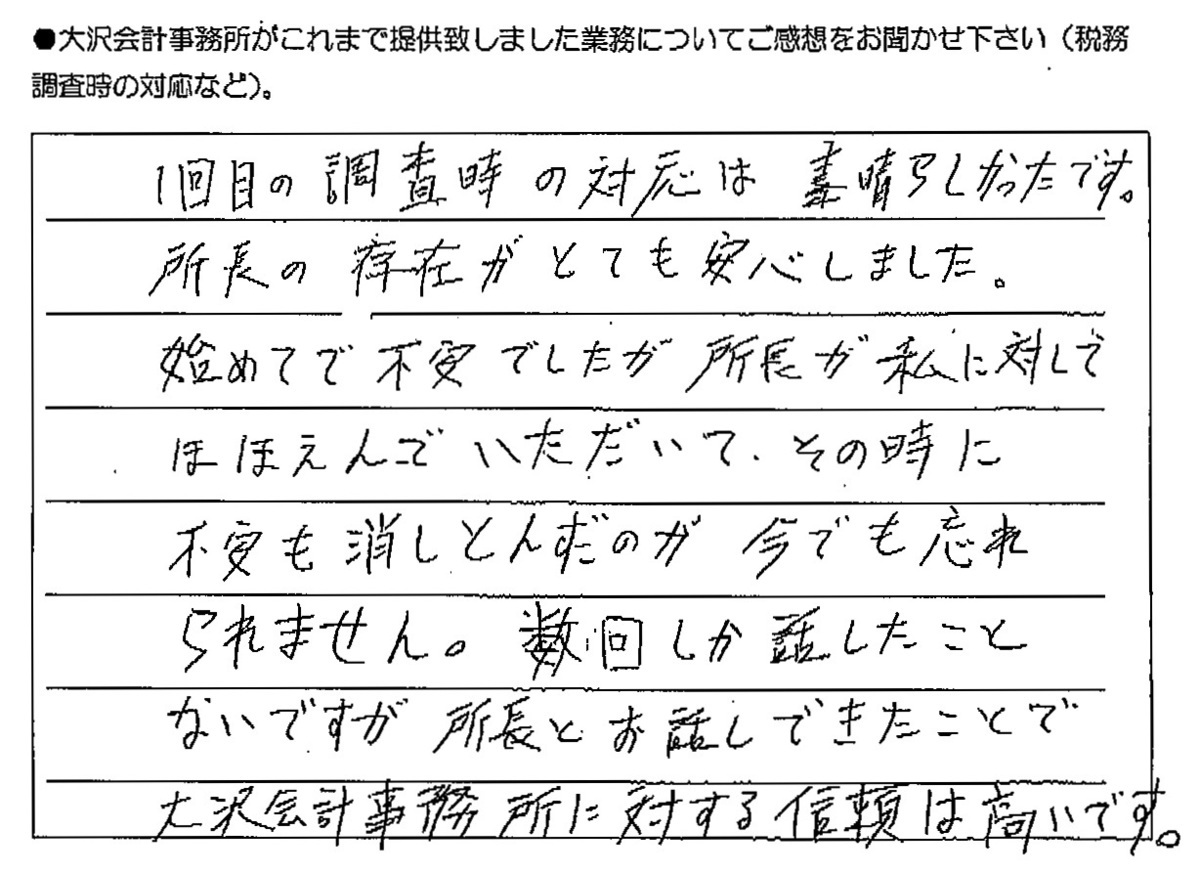 ●大沢会計事務所がこれまで提供致しました業務についてご感想をお聞かせ下さい（税務
調査時の対応など）。
1回目の調査時の対応は素晴らしかったです。
所長の存在がとても安心しました。
始めてで不安でしたが所長が私に対して
ほほえんでいただいて、その時に
不安も消しとんだのが今でも忘れ
られません。数回しか話したこと
ないですが所長とお話しできたことで
大沢会計事務所に対する信頼は高いです。